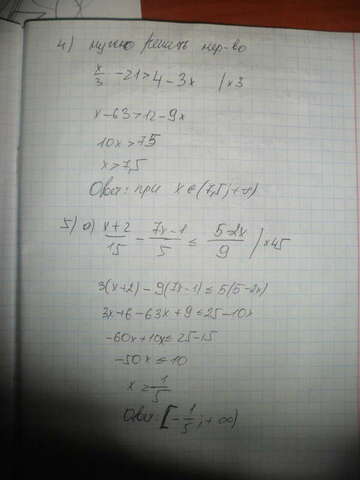 4) нужно решить нер-во
x/3 - 21 > 4 - 3x | ×3
x - 63 > 12 - 9x
10x > 75
x > 7,5
Ответ: при x ∈ (7,5; +∞)
5) а) (x+2)/15 - (7x-1)/5 ≤ (5-2x)/9 | ×45
3(x+2) - 9(7x-1) ≤ 5(5-2x)
3x+6-63x+9 ≤ 25-10x
-60x+10x ≤ 25-15
-50x ≤ 10
x ≥ -1/5
Ответ: [-1/5; +∞)